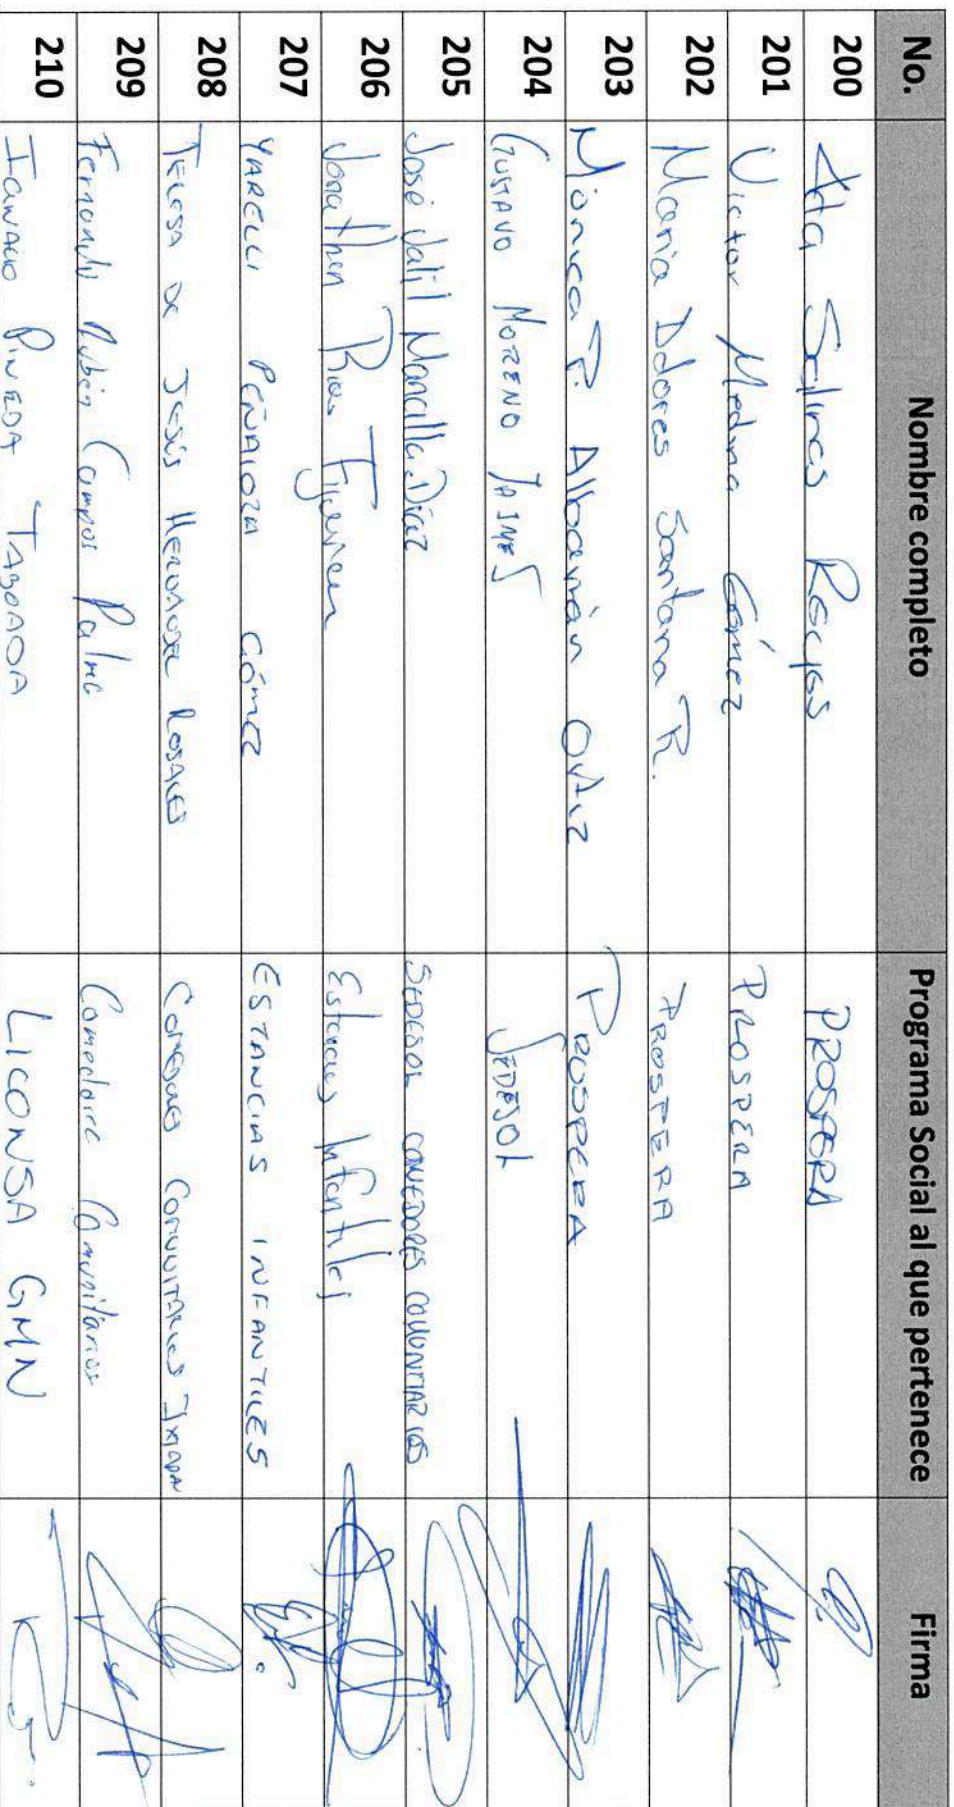 No. Nombre completo Programa Social al que pertenece Firma
200 Salinas Rosas PROSPERA
201 Victor Medina Gómez PROSPERA
202 Maria Dolores Santana R. PROSPERA
203 Mónica P. Albarrán Ortiz PROSPERA
204 GUSTAVO MORENO JAIMES SEDESOL
205 José Jalil Mancilla Díaz SEDESOL COMEDORES COMUNITARIOS
206 Jonathan Rios Figueroa Estancias Infantiles
207 YARELLI PEÑALOZA GÓMEZ ESTANCIAS INFANTILES
208 TERESA DE JESÚS ROSALES COMEDORES COMUNITARIOS
209 Fernando Rubén Campos Palma Comedores Comunitarios
210 IGNACIO PINEDA TABOADA LICONSA GMN